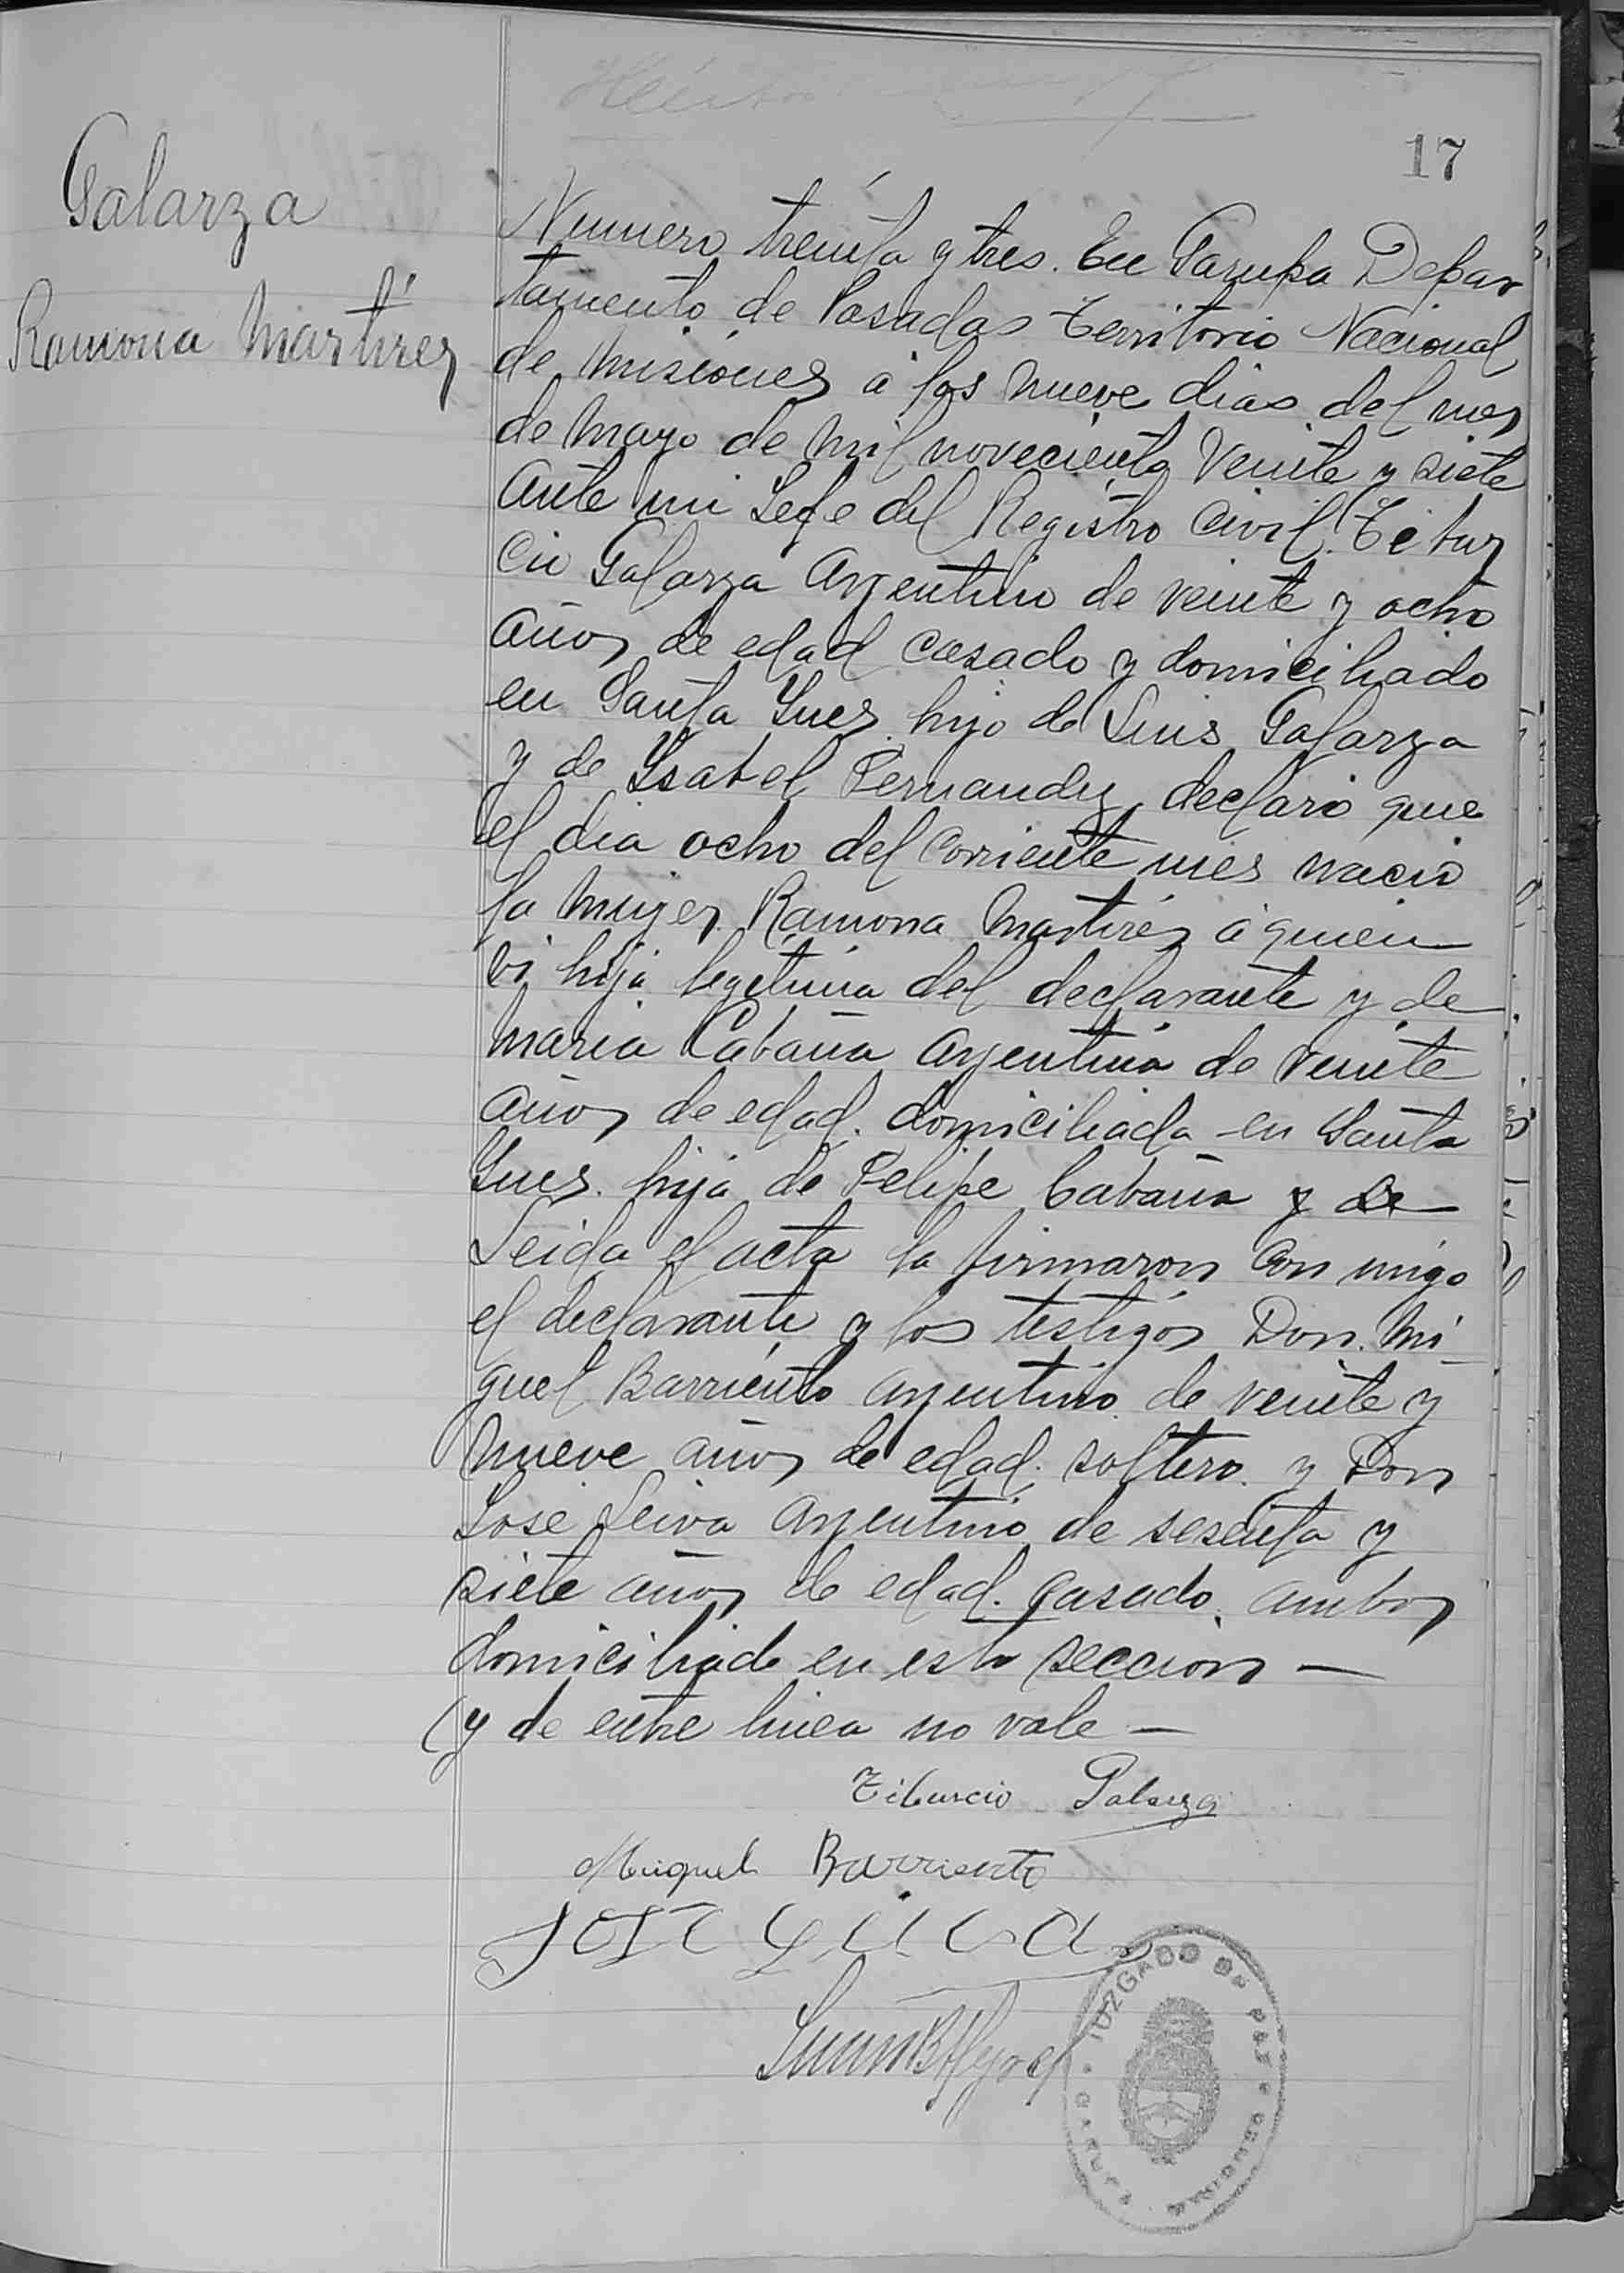 17
Galarza
Ramona Martirez
Numero treinta y tres. En Garupa Depar
tamento de Posadas Territorio Nacional
de Misiones á los nueve dias del mes
de Mayo de mil novecienta Veinte y siete
Ante mi Jefe del Registro Civil. Tibur
cio Galarza Argentino de veinte y ocho
años de edad casado y domiciliado
en Santa Ynes hijo de Luis Galarza
y de Ysabel Fernandez, declaro que
el dia ocho del corriente mes nacio
la mujer Ramona Martirez á quien
vi hija legitima del declarante y de
Maria Cabaña Argentina de veinte
años de edad. domiciliada en Santa
Ynes. hija de Felipe Cabaña y de
Leida el acta la firmaron con migo
el declarante y los testigos Don. Mi
guel Barriento argentino de veinte y
nueve años de edad. soltero y Don
Jose Leiva argentino de sesenta y
siete años de edad. casado. ambos
domiciliado en esta seccion —
(y de entre linea no vale —
Tiburcio Galarza
Miguel Barriento
JOSE Leiva
JUZGADO DE PAZ
MISIONES
GARUPA